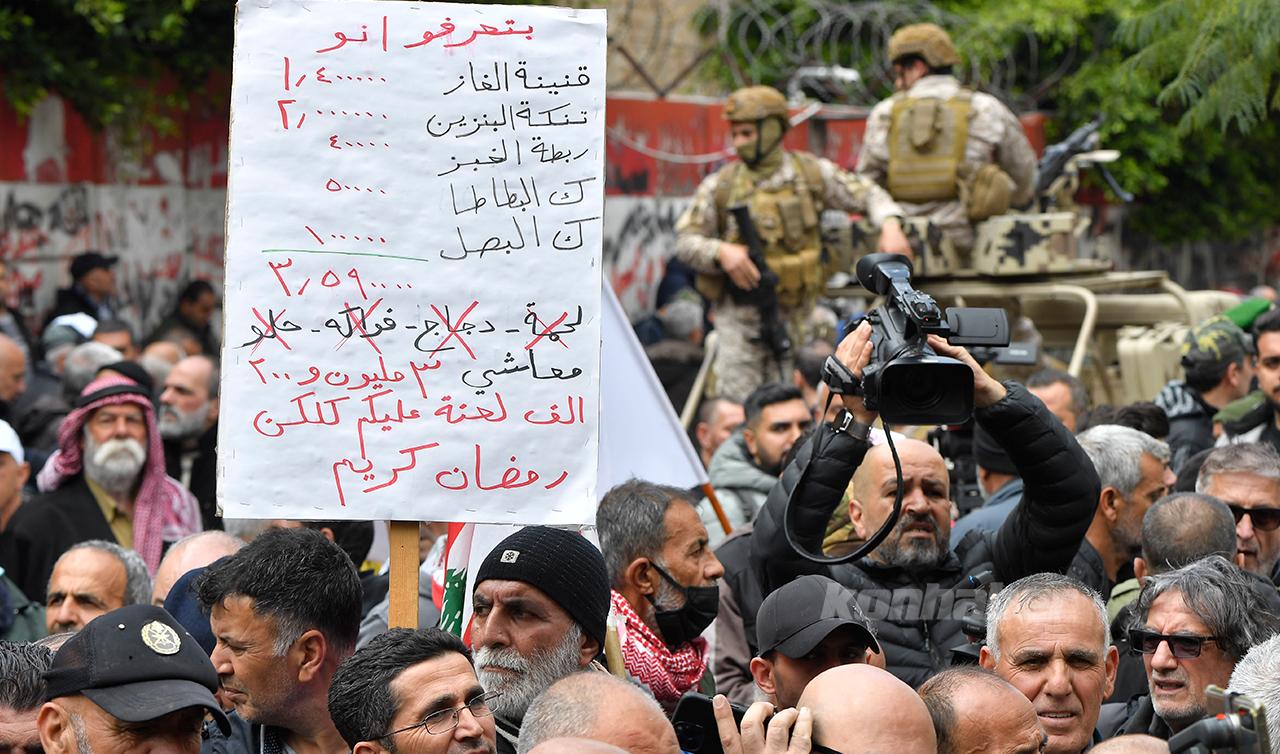 بتعرفو انو
قنينة الغاز ١٫٤٠٠٠٠٠
تنكة البنزين ٢٫٠٠٠٠٠٠
ربطة الخبز ٤٠٠٠٠
ك البطاطا ٥٠٠٠٠
ك البصل ١٠٠٠٠٠
٣٫٥٩٠٠٠٠
لحمة - دجاج - فواكه - حلو
معاشي ٣ مليون و ٢٠٠
الف لعنة عليكم كلكن
رمضان كريم